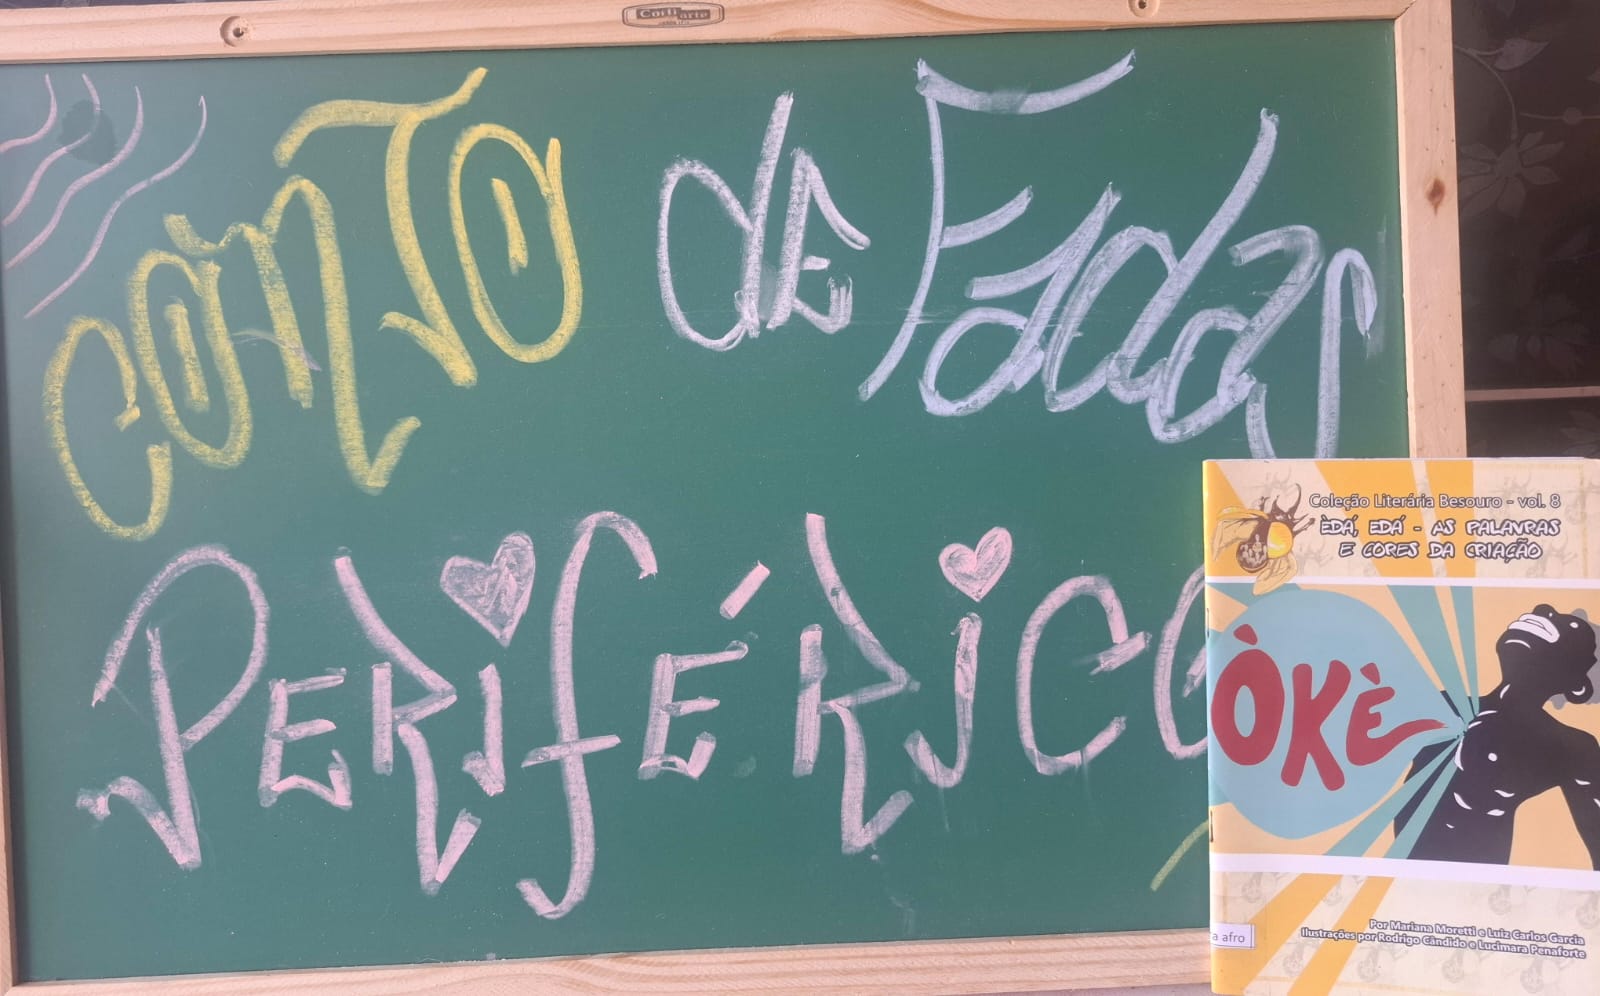 Cortiarte
CONTO de Fadas
PERIFÉRICO
Coleção Literária Besouro - vol. 8
ÈDÁ, EDÁ - AS PALAVRAS
E CORES DA CRIAÇÃO
ÒKÈ
Por Mariana Moretti e Luiz Carlos Garcia
Ilustrações por Rodrigo Cândido e Lucimara Penaforte
a afro